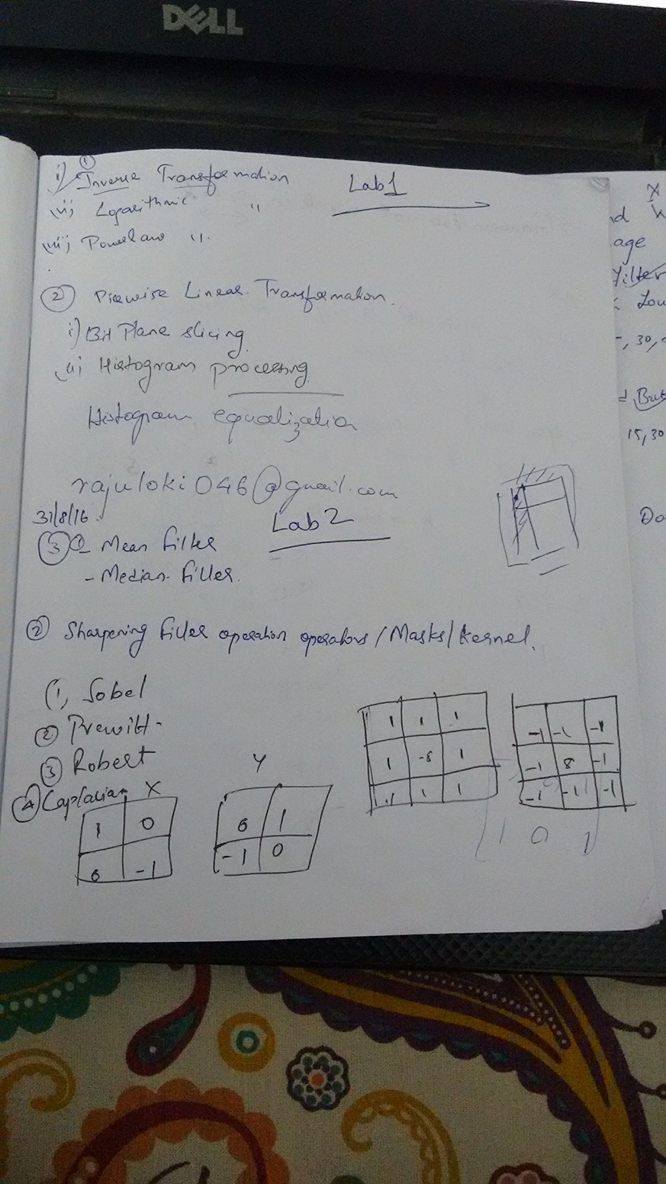 DELL
①
i) Inverse Transformation
Lab 1
ii) Logarithmic "
iii) Powerlaw ".
② Piewise Linear Transformation.
i) Bit Plane slicing
ii) Histogram processing
Histogram equalization
rajuloki046@gmail.com
31/8/16.
Lab 2
③ ① - Mean filter
- Median filter.
② Sharpening filter operation operators / Masks / Kernel.
(1) Sobel
② Prewitt
③ Robert
④ Laplacian
X
1 0
0 -1
Y
0 1
-1 0
1 1 1
1 -8 1
1 1 1
-1 -1 -1
-1 8 -1
-1 -1 -1
1 0 1
X
age
filter
Low
, 30,
15, 30
Do